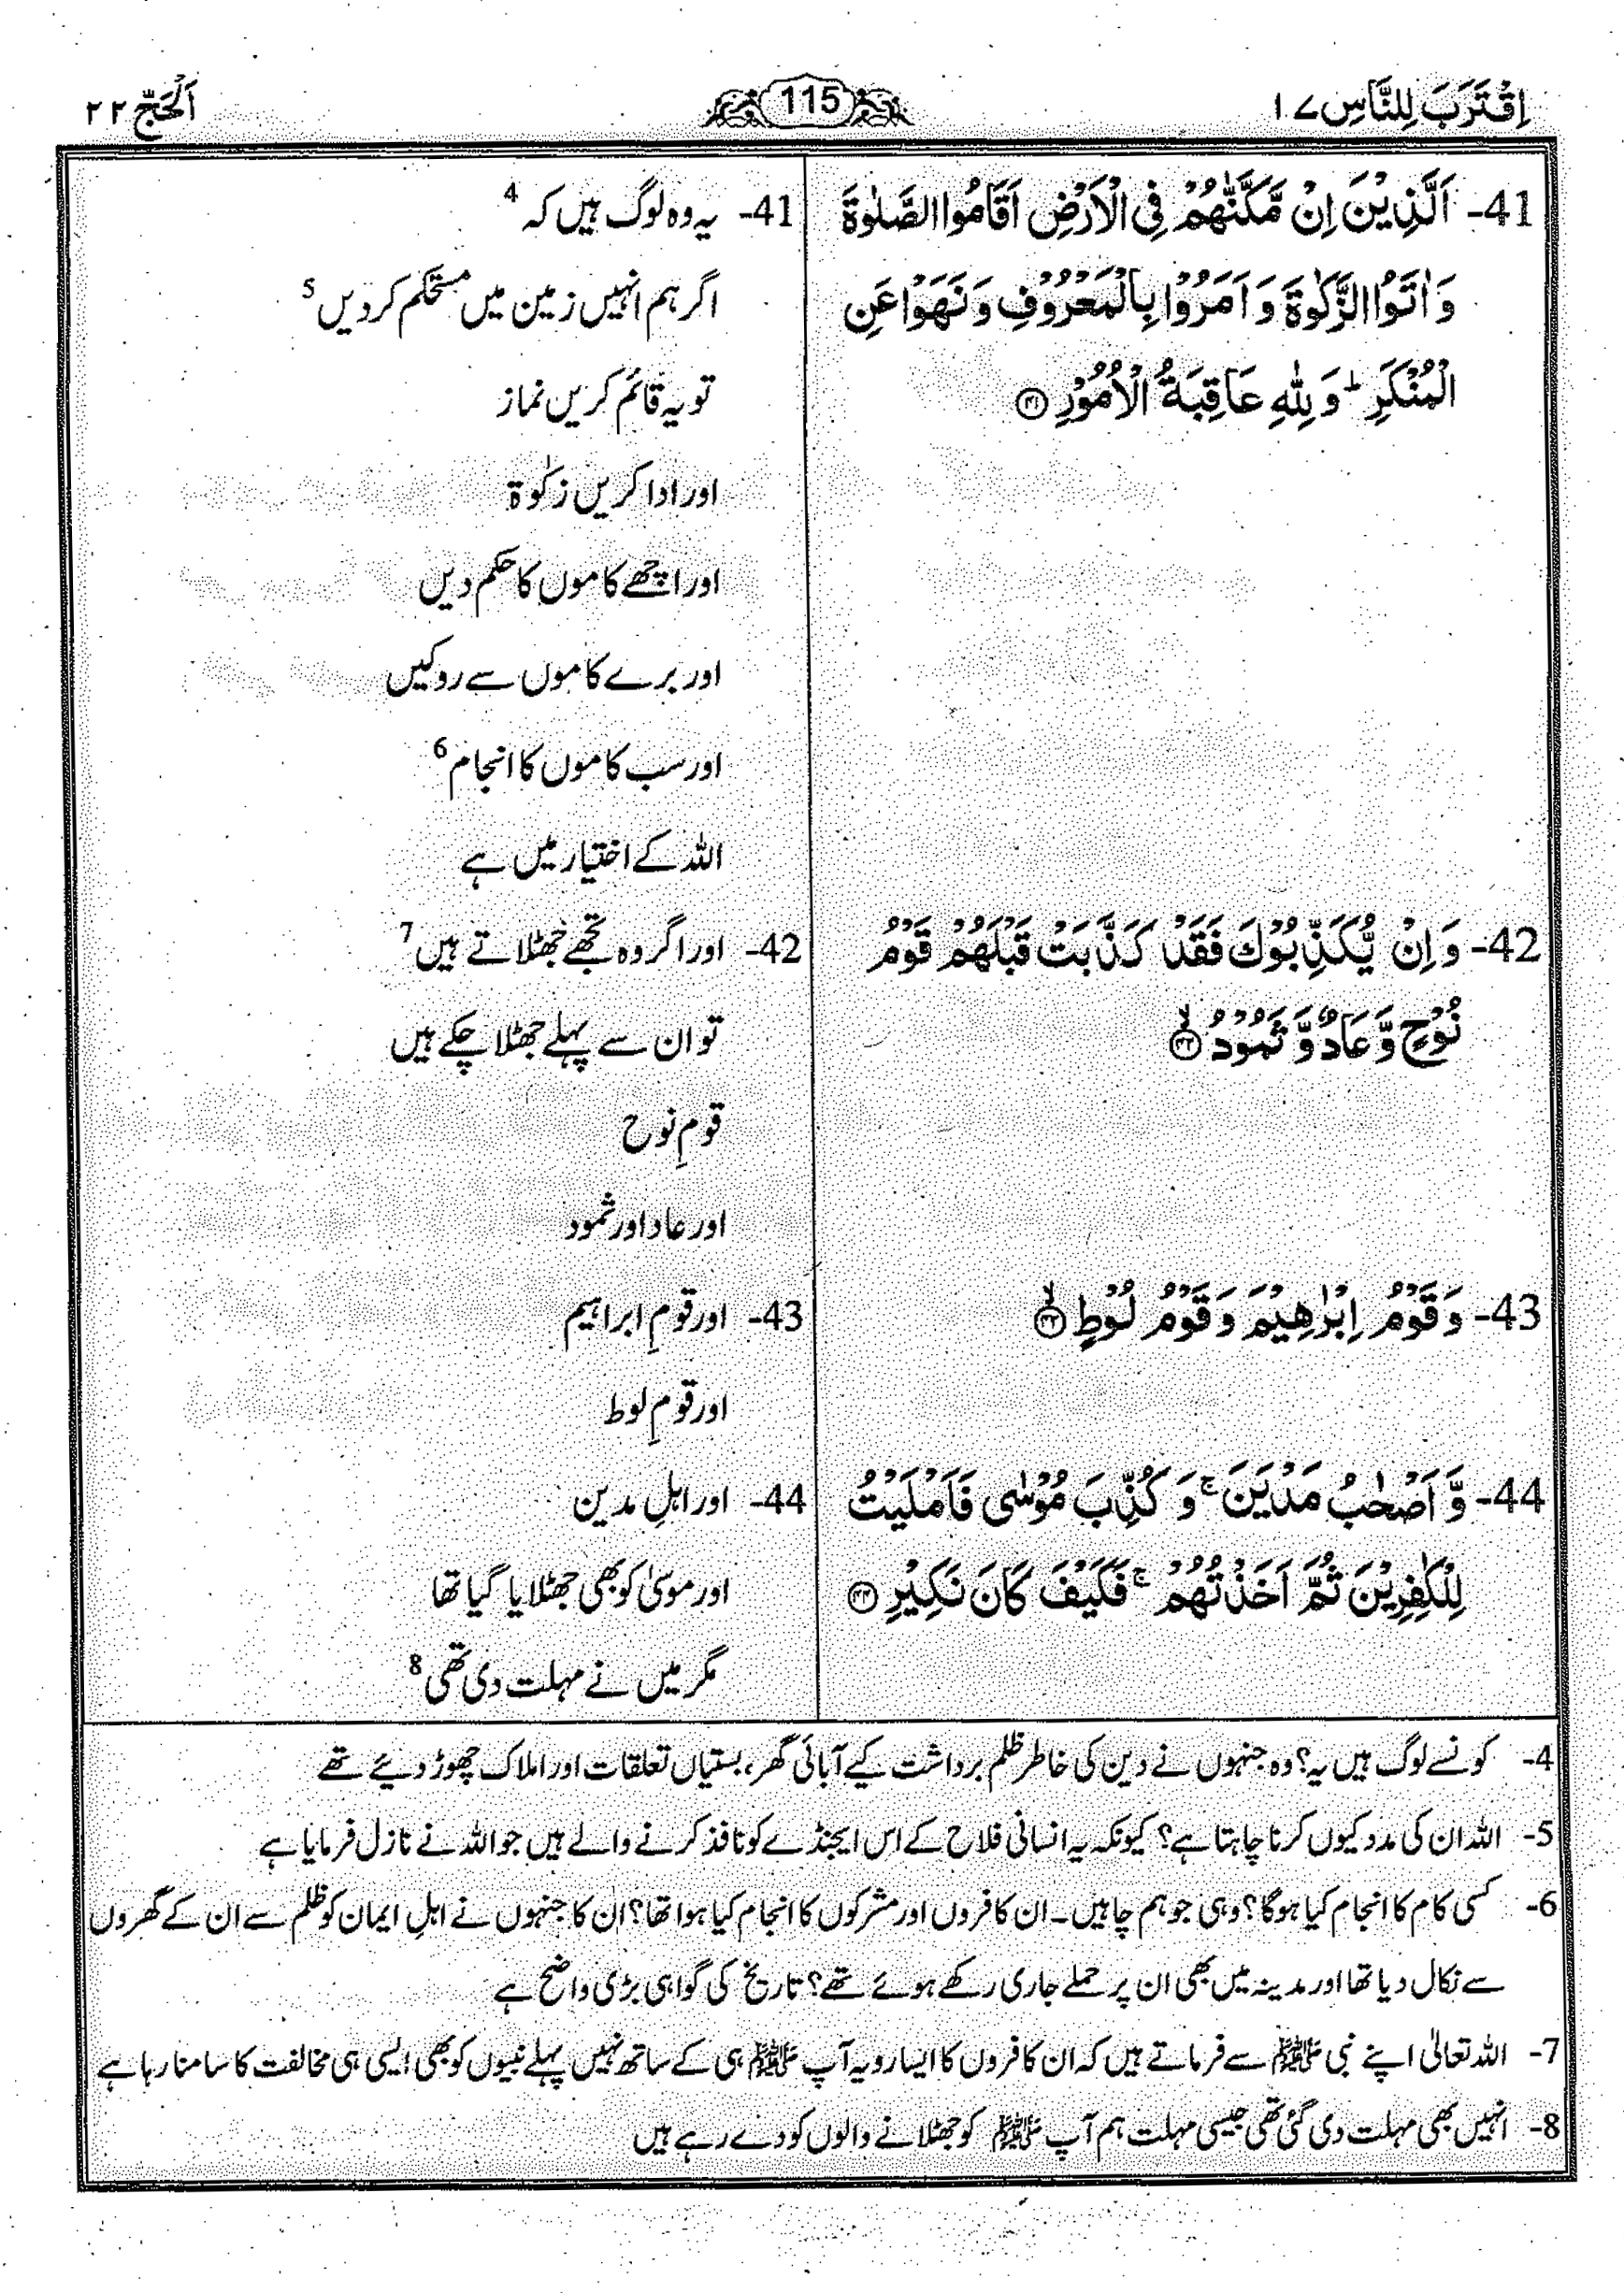 اِقْتَرَبَ لِلنَّاسِ ۱۷
115
اَلْحَجّ ۲۲
41- اَلَّذِيْنَ اِنْ مَّكَّنّٰهُمْ فِي الْاَرْضِ اَقَامُوا الصَّلٰوةَ
وَ اٰتَوُا الزَّكٰوةَ وَ اَمَرُوْا بِالْمَعْرُوْفِ وَ نَهَوْا عَنِ
الْمُنْكَرِ ؕ وَ لِلّٰهِ عَاقِبَةُ الْاُمُوْرِ ۝۴۱
41- یہ وہ لوگ ہیں کہ 4
اگر ہم انہیں زمین میں مستحکم کردیں 5
تو یہ قائم کریں نماز
اور ادا کریں زکوٰۃ
اور اچھے کاموں کا حکم دیں
اور برے کاموں سے روکیں
اور سب کاموں کا انجام 6
اللہ کے اختیار میں ہے
42- وَ اِنْ يُّكَذِّبُوْكَ فَقَدْ كَذَّبَتْ قَبْلَهُمْ قَوْمُ
نُوْحٍ وَّ عَادٌ وَّ ثَمُوْدُ ۝۴۲ۙ
42- اور اگر وہ تجھے جھٹلاتے ہیں 7
تو ان سے پہلے جھٹلا چکے ہیں
قومِ نوح
اور عاد اور ثمود
43- وَ قَوْمُ اِبْرٰهِيْمَ وَ قَوْمُ لُوْطٍ ۝۴۳ۙ
43- اور قومِ ابراہیم
اور قومِ لوط
44- وَّ اَصْحٰبُ مَدْيَنَ ۚ وَ كُذِّبَ مُوْسٰى فَاَمْلَيْتُ
لِلْكٰفِرِيْنَ ثُمَّ اَخَذْتُهُمْ ۚ فَكَيْفَ كَانَ نَكِيْرِ ۝۴۴
44- اور اہلِ مدین
اور موسیٰ کو بھی جھٹلایا گیا تھا
مگر میں نے مہلت دی تھی 8
4- کونسے لوگ ہیں یہ؟ وہ جنہوں نے دین کی خاطر ظلم برداشت کیے آبائی گھر، بستیاں تعلقات اور املاک چھوڑ دیئے تھے
5- اللہ ان کی مدد کیوں کرنا چاہتا ہے؟ کیونکہ یہ انسانی فلاح کے اس ایجنڈے کو نافذ کرنے والے ہیں جو اللہ نے نازل فرمایا ہے
6- کسی کام کا انجام کیا ہوگا؟ وہی جو ہم چاہیں۔ ان کافروں اور مشرکوں کا انجام کیا ہوا تھا؟ ان کا جنہوں نے اہلِ ایمان کو ظلم سے ان کے گھروں
سے نکال دیا تھا اور مدینہ میں بھی ان پر حملے جاری رکھے ہوئے تھے؟ تاریخ کی گواہی بڑی واضح ہے
7- اللہ تعالیٰ اپنے نبی ﷺ سے فرماتے ہیں کہ ان کافروں کا ایسا رویہ آپ ﷺ ہی کے ساتھ نہیں پہلے نبیوں کو بھی ایسی ہی مخالفت کا سامنا رہا ہے
8- انہیں بھی مہلت دی گئی تھی جیسی مہلت ہم آپ ﷺ کو جھٹلانے والوں کو دے رہے ہیں